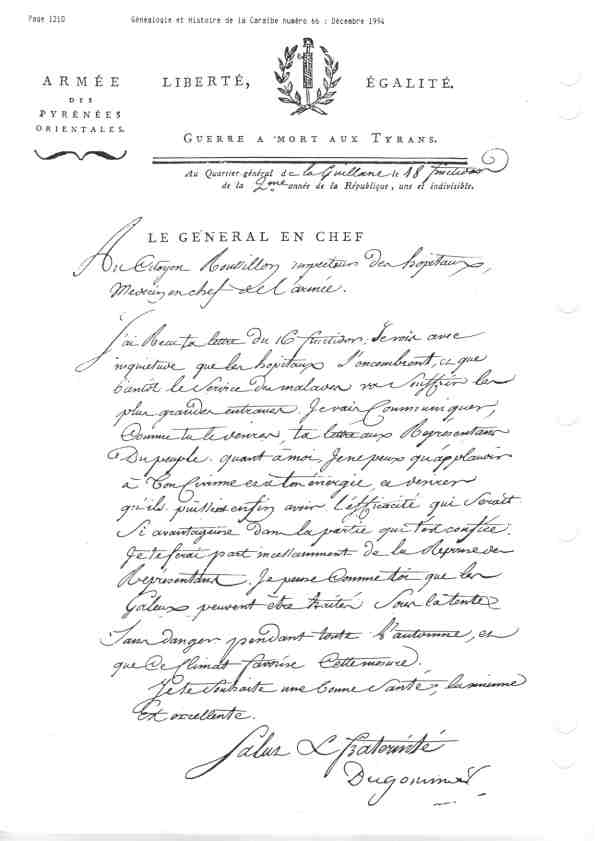 Page 1210 Généalogie et Histoire de la Caraïbe numéro 66 : Décembre 1994
ARMÉE LIBERTÉ, ÉGALITÉ.
DES
PYRÉNÉES
ORIENTALES.
GUERRE A MORT AUX TYRANS.
Au Quartier général de la Guillane le 18 fructidor
de la 2me année de la République, une et indivisible.
LE GÉNÉRAL EN CHEF
Au Citoyen Roussillon inspecteur des hopitaux,
Medecin en chef de l'armée.
J'ai Recu ta lettre du 16 fructidor. Je vois avec
inquietude que les hopitaux s'encombrent, et que
bientot le Service des malades va Souffrir les
plus grandes entraves. Je vais Communiquer,
Comme tu le desires, ta lettre aux Représentans
Du peuple. quant à moi, Je ne peux qu'applaudir
à ton Civisme et à ton énergie, et desirer
qu'ils puissent enfin avoir l'efficacité qui Serait
Si avantageuse dans la partie qui t'est confiée.
Je te ferai part incessamment de la Reponse des
Représentans. Je pense Comme toi que les
Galeux peuvent être traités Sous la tente
Sans danger pendant toute l'automne, et
que Ce Climat favorise Cette mesure.
Je te Souhaite une bonne Santé, la mienne
Est excellente.
Salut & fraternité
Dugommier